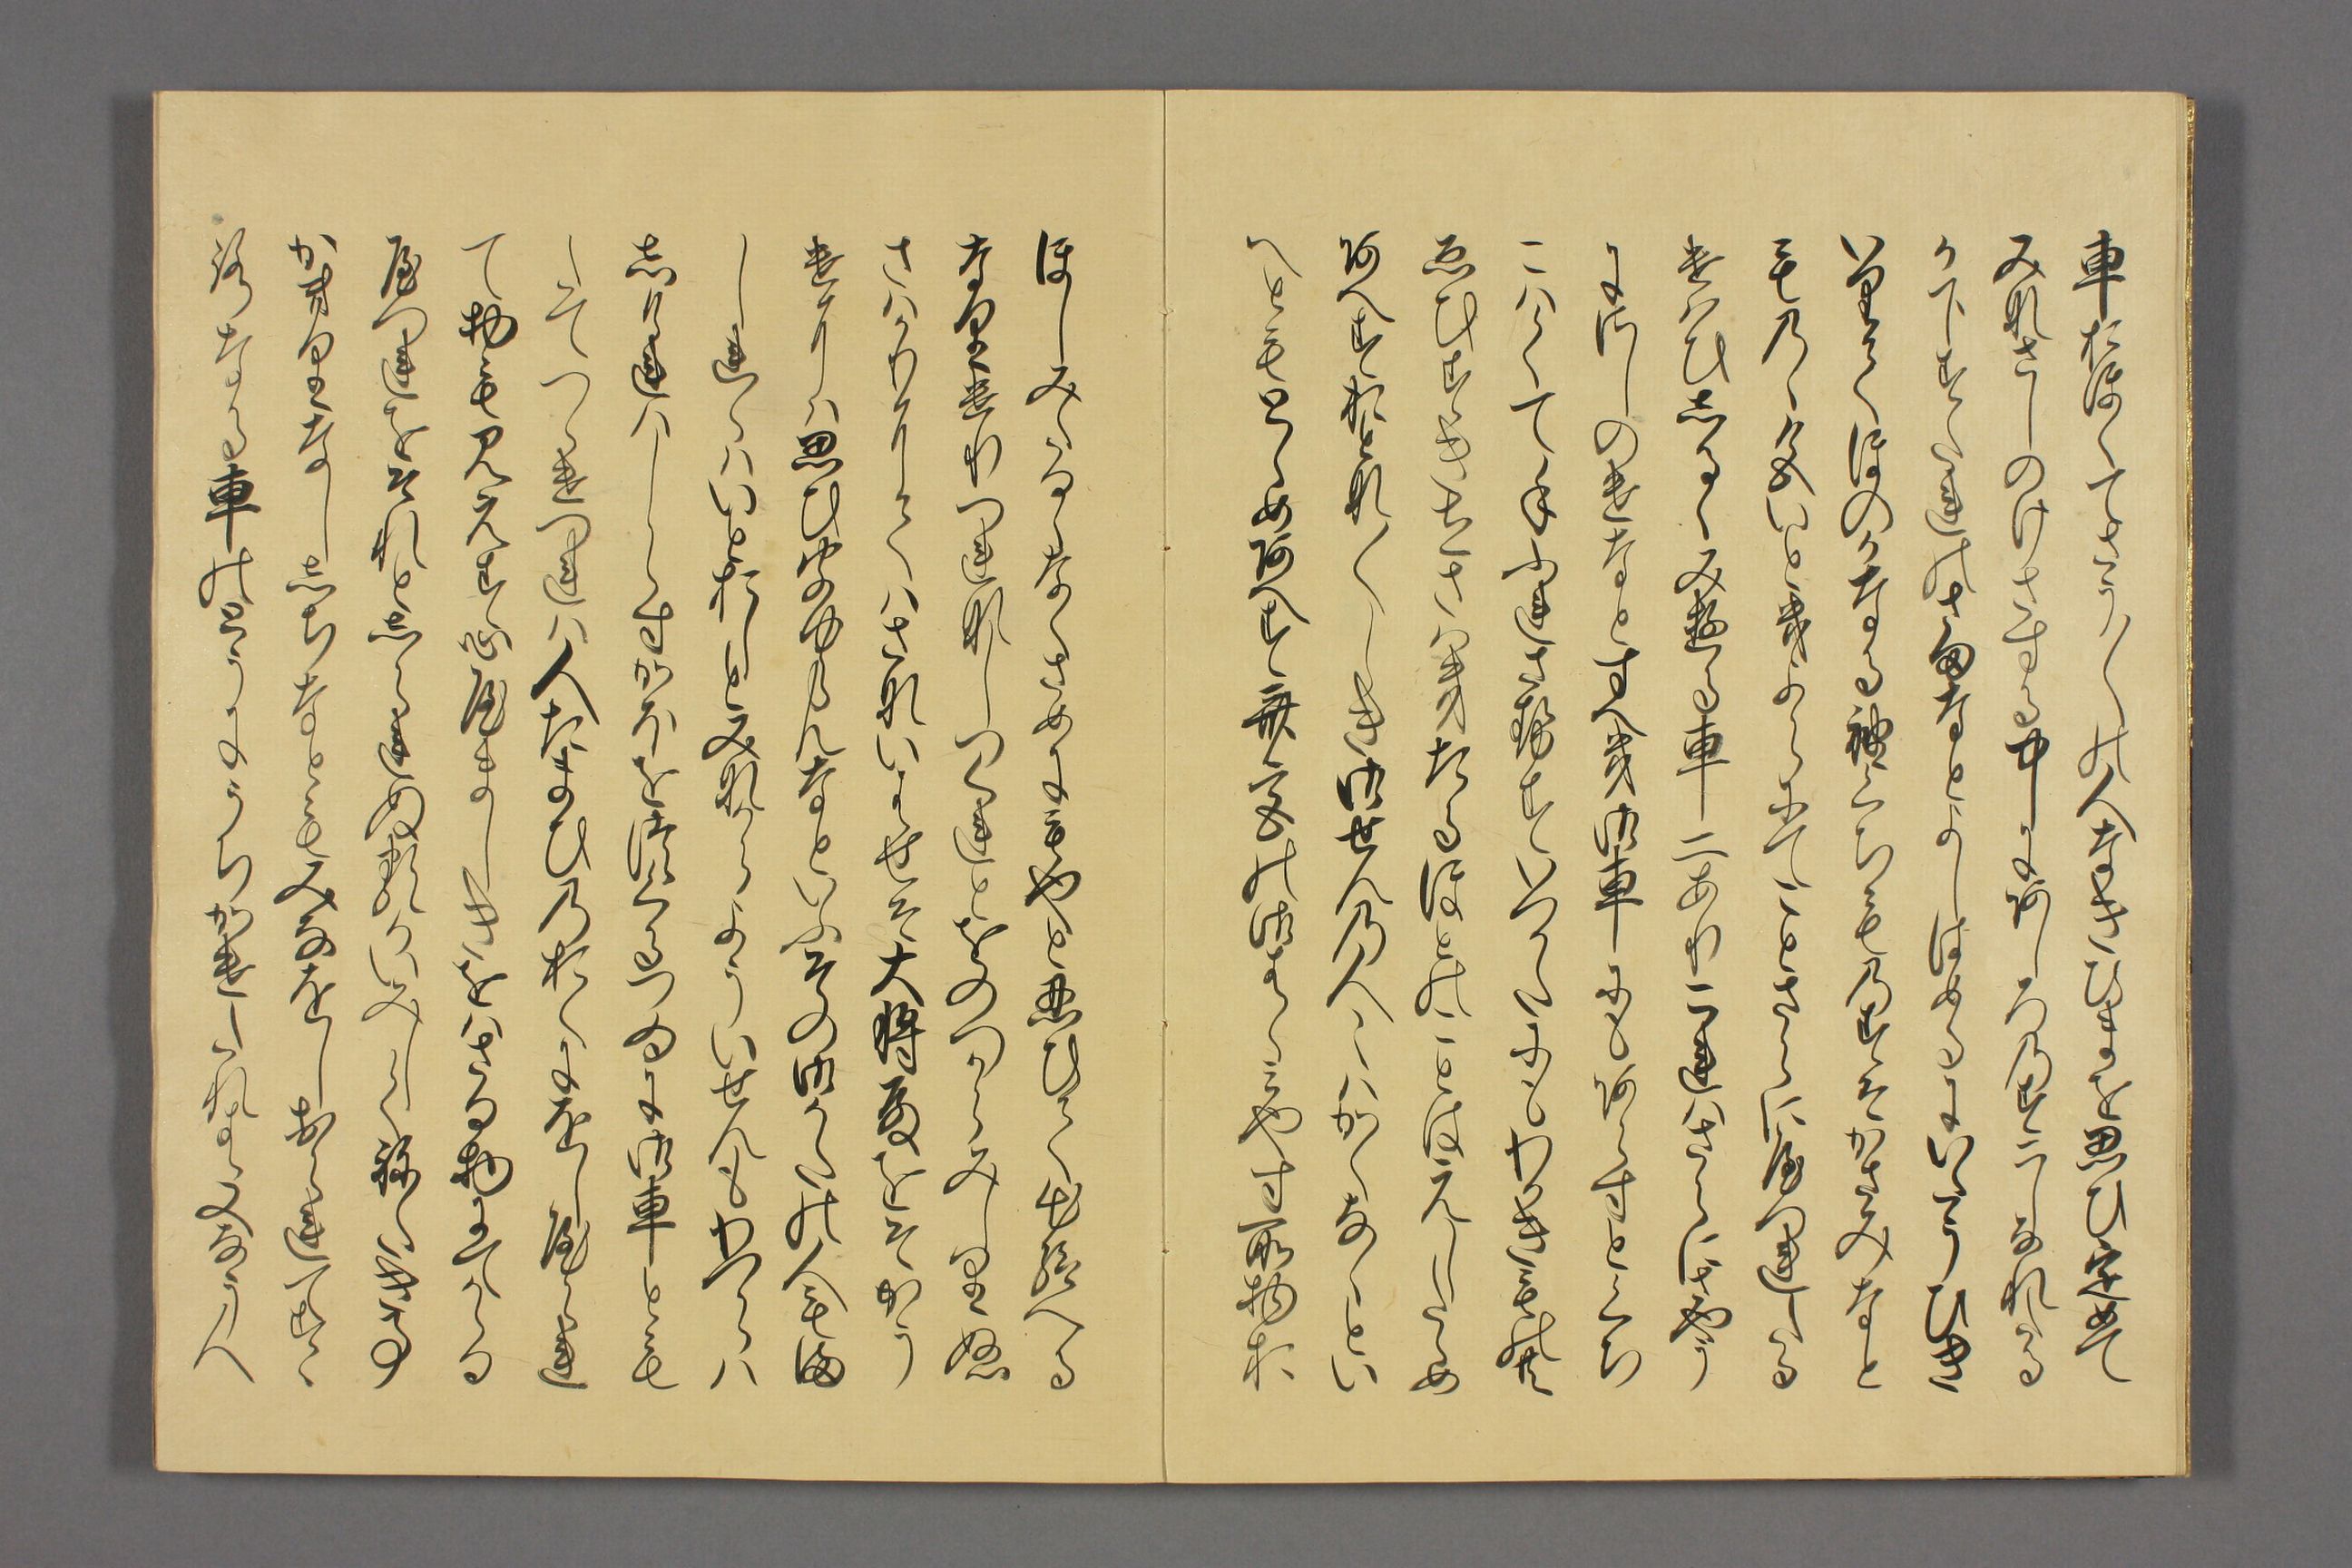 車おほくてさう／＼の人なきひまを思ひ定めて
みなさしのけさする中にあしろのすこしなれたる
か下すたれのさまなとよしはめるにいたうひき
いりてほのかなる袖くちものすそかさみなと
ものゝ色いときよらにてことさらにやつれたる
けはひしるくみゆる車二ありこれはさらにさやう
にさしのけなとすへき御車にもあらすとくち
こはくて手ふれさせすいつかたにもわかきものとも
ゑひすきたちさはきたるほとのことはえしたゝめ
あへすおとな／＼しき御せんの人々はかくなゝとい
へともとゝめあへす斎宮の御はゝみやす所物お
ほしみたるゝなくさめにもやと思ひて出給へる
なりけりつれなしつくれとをのつからみしりぬ
さはかりにてはさないはせそ大将殿をそかう
けには思ひきこゆらんなといふをその御かたの人もま
しれゝはいとおしとみなからよういせんもわつらは
しけれはしらすかほをつくるつゐに御車とも
たてつゝけつれは人たまひのおくにをしやられ
て物も見えす心やましきをはさる物にてかゝる
やつれをそれとしられぬるかいみしくねたきこと
かきりなししちなともみなをしおられてすゝ
ろなる車のとうにうちかけたれは又なう人